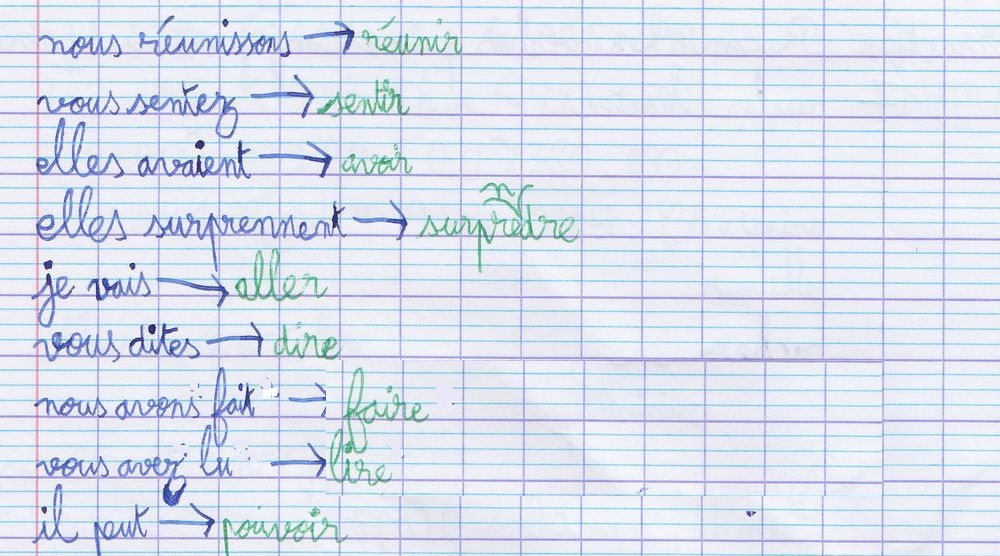 nous réunissons → réunir
vous sentez → sentir
elles avaient → avoir
elles surprennent → surprendre
je vais → aller
vous dites → dire
nous avons fait → faire
vous avez lu → lire
il peut → pouvoir